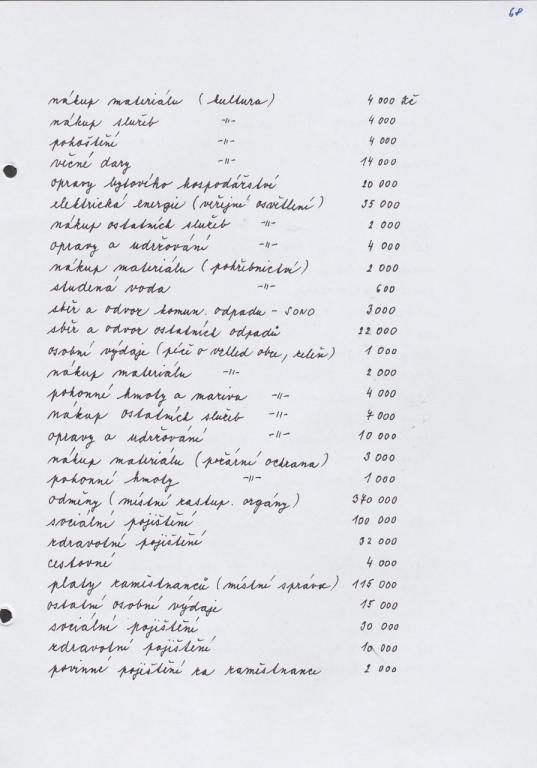 68
nákup materiálu (kultura) 4 000 Kč
nákup služeb -"- 4 000
pohoštění 4 000
věcné dary -"- 14 000
opravy bytového hospodářství 20 000
elektrická energie (veřejné osvětlení) 35 000
nákup ostatních služeb -"- 2 000
opravy a udržování -"- 4 000
nákup materiálu (pohřebnictví) 2 000
studená voda -"- 600
sběr a odvoz komun. odpadu - SONO 3 000
sběr a odvoz ostatních odpadů 22 000
osobní výdaje (péče o vzhled obce, zeleň) 1 000
nákup materiálu -"- 2 000
pohonné hmoty a maziva -"- 4 000
nákup ostatních služeb -"- 7 000
opravy a udržování -"- 10 000
nákup materiálu (požární ochrana) 3 000
pohonné hmoty -"- 1 000
odměny (místní zastup. orgány) 370 000
sociální pojištění 100 000
zdravotní pojištění 32 000
cestovné 4 000
platy zaměstnanců (místní správa) 115 000
ostatní osobní výdaje 15 000
sociální pojištění 30 000
zdravotní pojištění 10 000
povinné pojištění za zaměstnance 2 000